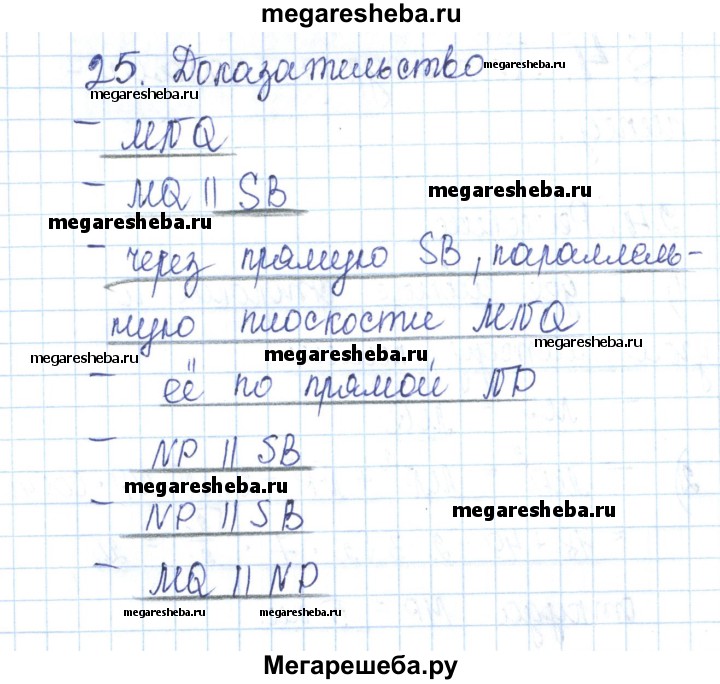 megaresheba.ru
25. Доказательство
megaresheba.ru
megaresheba.ru
– MNQ
– MQ || SB
megaresheba.ru
megaresheba.ru
– через прямую SB, параллель-
ную плоскости MNQ
megaresheba.ru
megaresheba.ru
megaresheba.ru
– её по прямой NP
– NP || SB
megaresheba.ru
– NP || SB
megaresheba.ru
– MQ || NP
megaresheba.ru
megaresheba.ru
Мегарешеба.ру